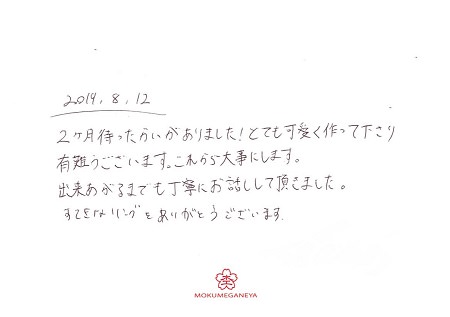 2019.8.12
2ヶ月待ったかいがありました!とても可愛く作って下さり
有難うございます。これから大事にします。
出来あがるまでも丁寧にお話しして頂きました。
すてきなリングをありがとうございます。
MOKUMEGANEYA